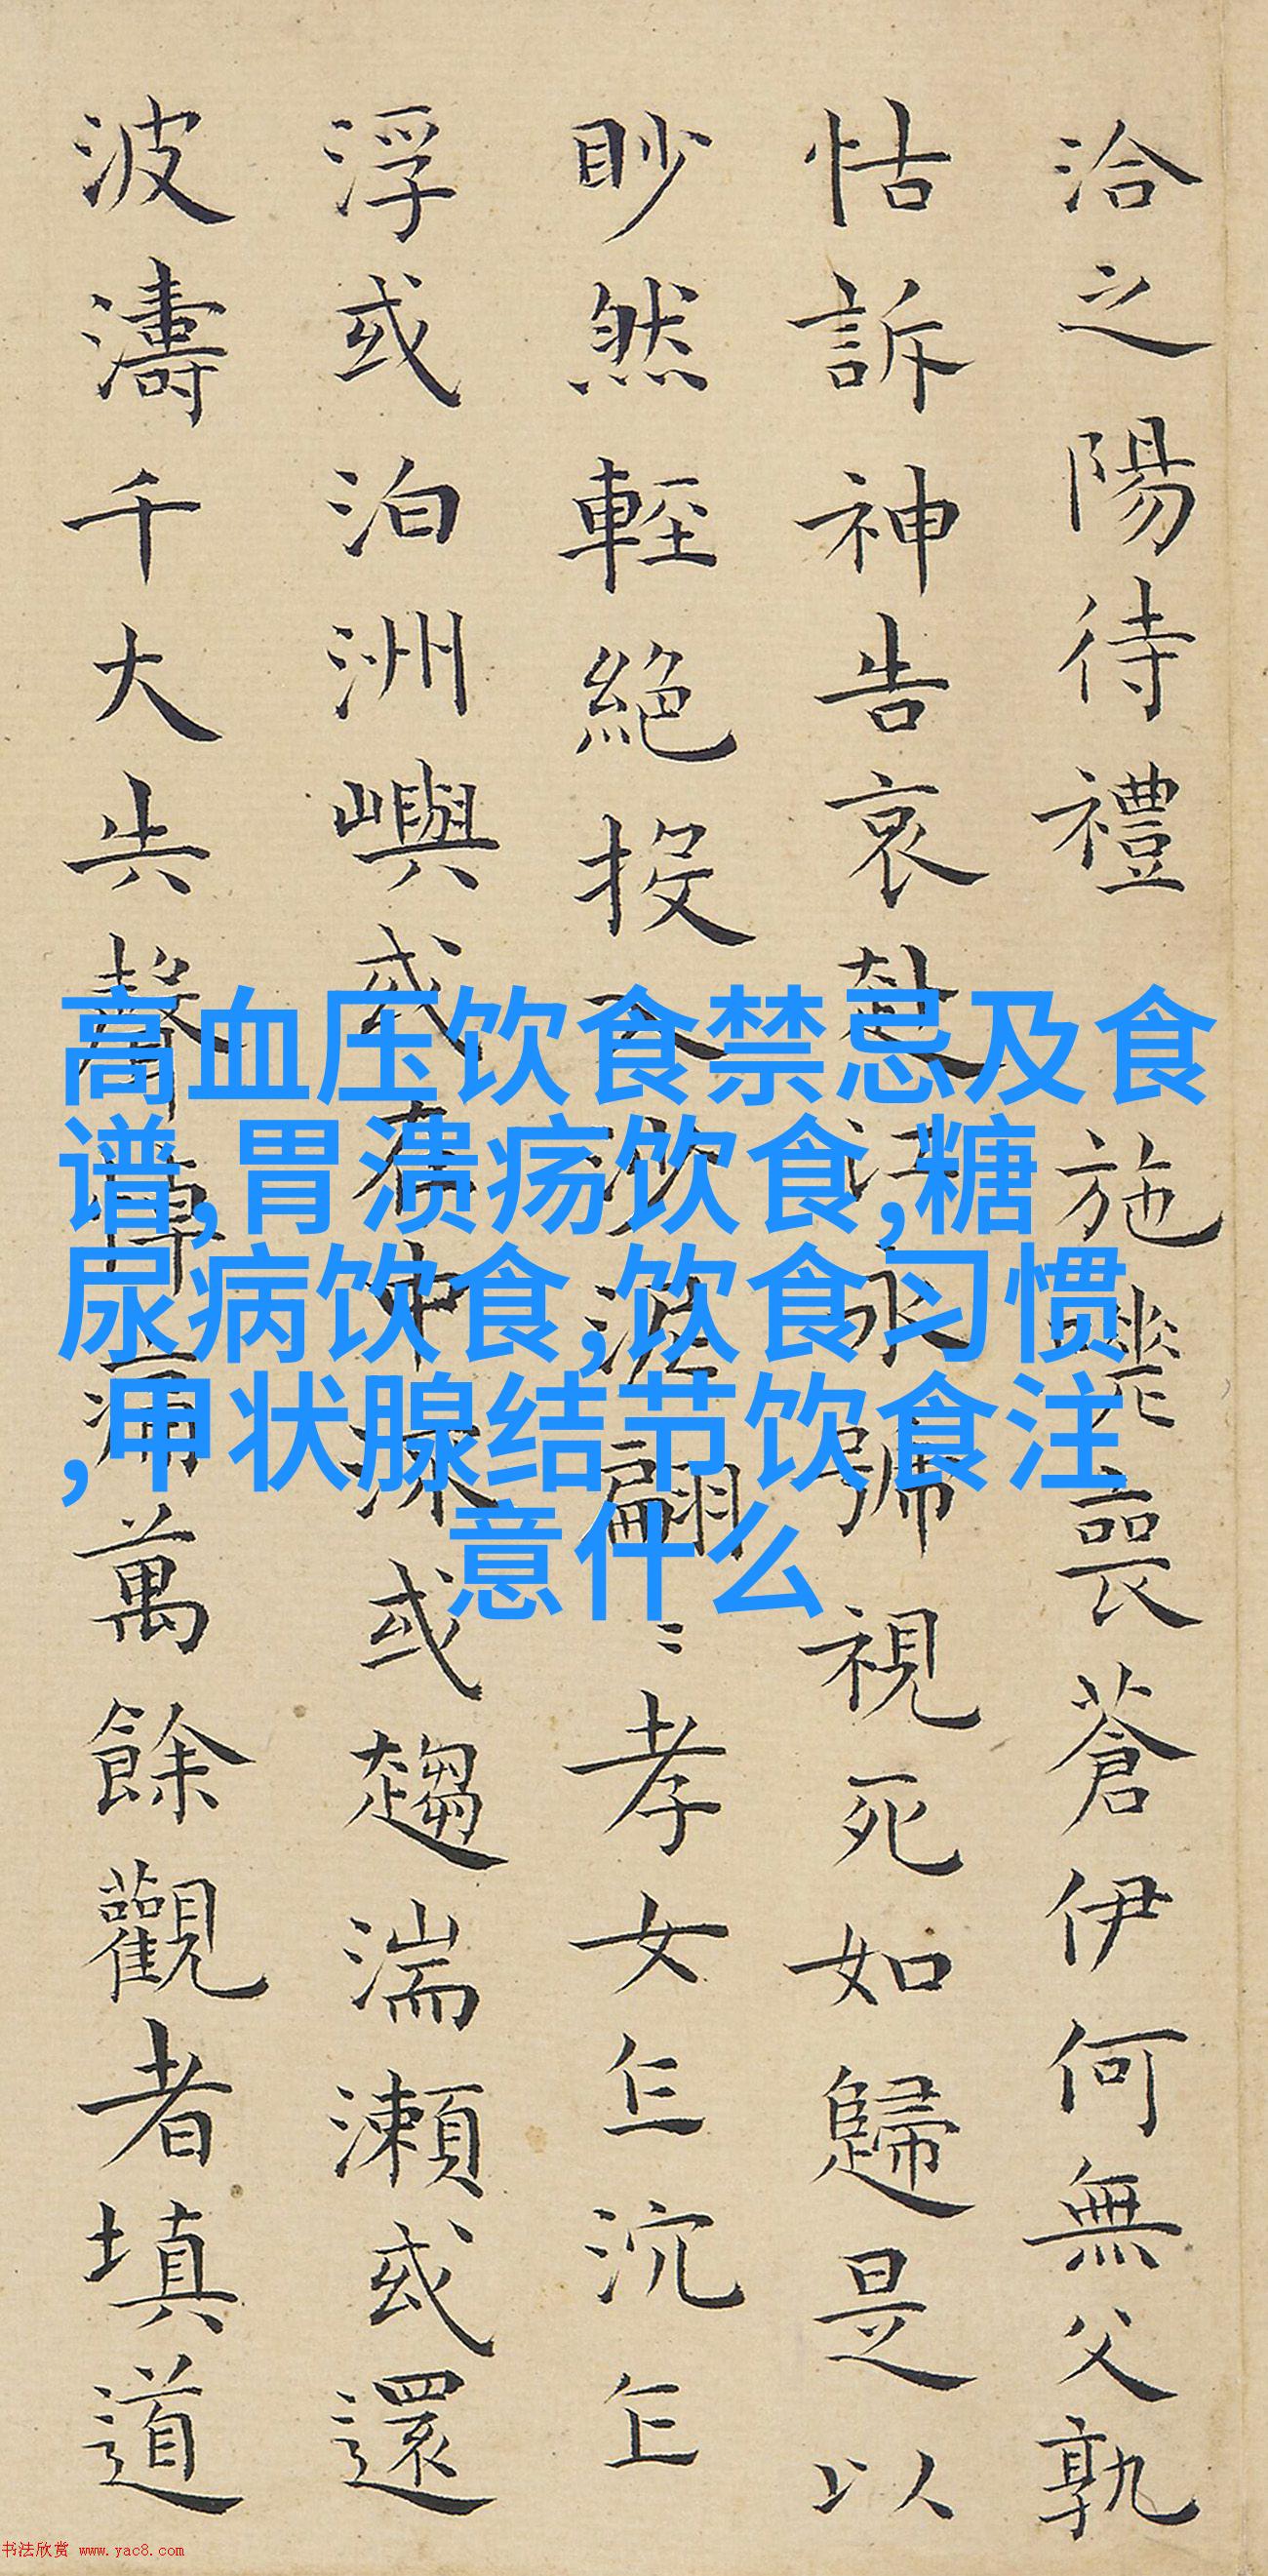 洽之陽待禮施嗟喪蒼伊何無父孰
怙訴神告哀赴江永號視死如歸是以
眇然輕絕投入沙泥翩〻孝女乍沉乍
浮或泊洲嶼或在中流或趨湍瀨或還
波濤千大失聲悼痛萬餘觀者填道
高血压饮食禁忌及食
谱,胃溃疡饮食,糖
尿病饮食,饮食习惯
,甲状腺结节饮食注
意什么
书法欣赏 www.yac8.com